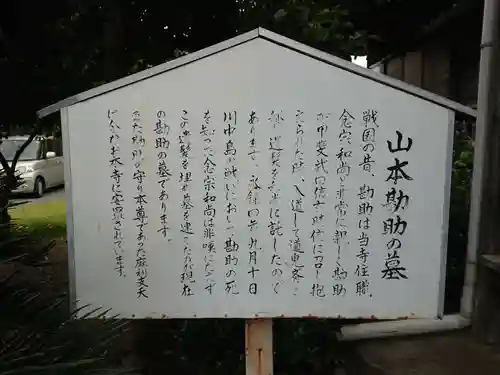 山本勘助の墓
戦国の昔、勘助は当寺住職、
念宗和尚と非常に親しく勘助
が甲斐武田信玄(時信)に召し抱
えられた時、入道して道鬼斎と
称し遺髪を和尚に託したので
あります。永禄四年九月十日
川中島の戦いにおいて勘助の死
を知った念宗和尚は非嘆にたえず
この遺髪を埋め墓を建てたのが現在
の勘助の墓であります。
また勘助の守り本尊であった摩利支天
は、今なお本寺に安置されています。